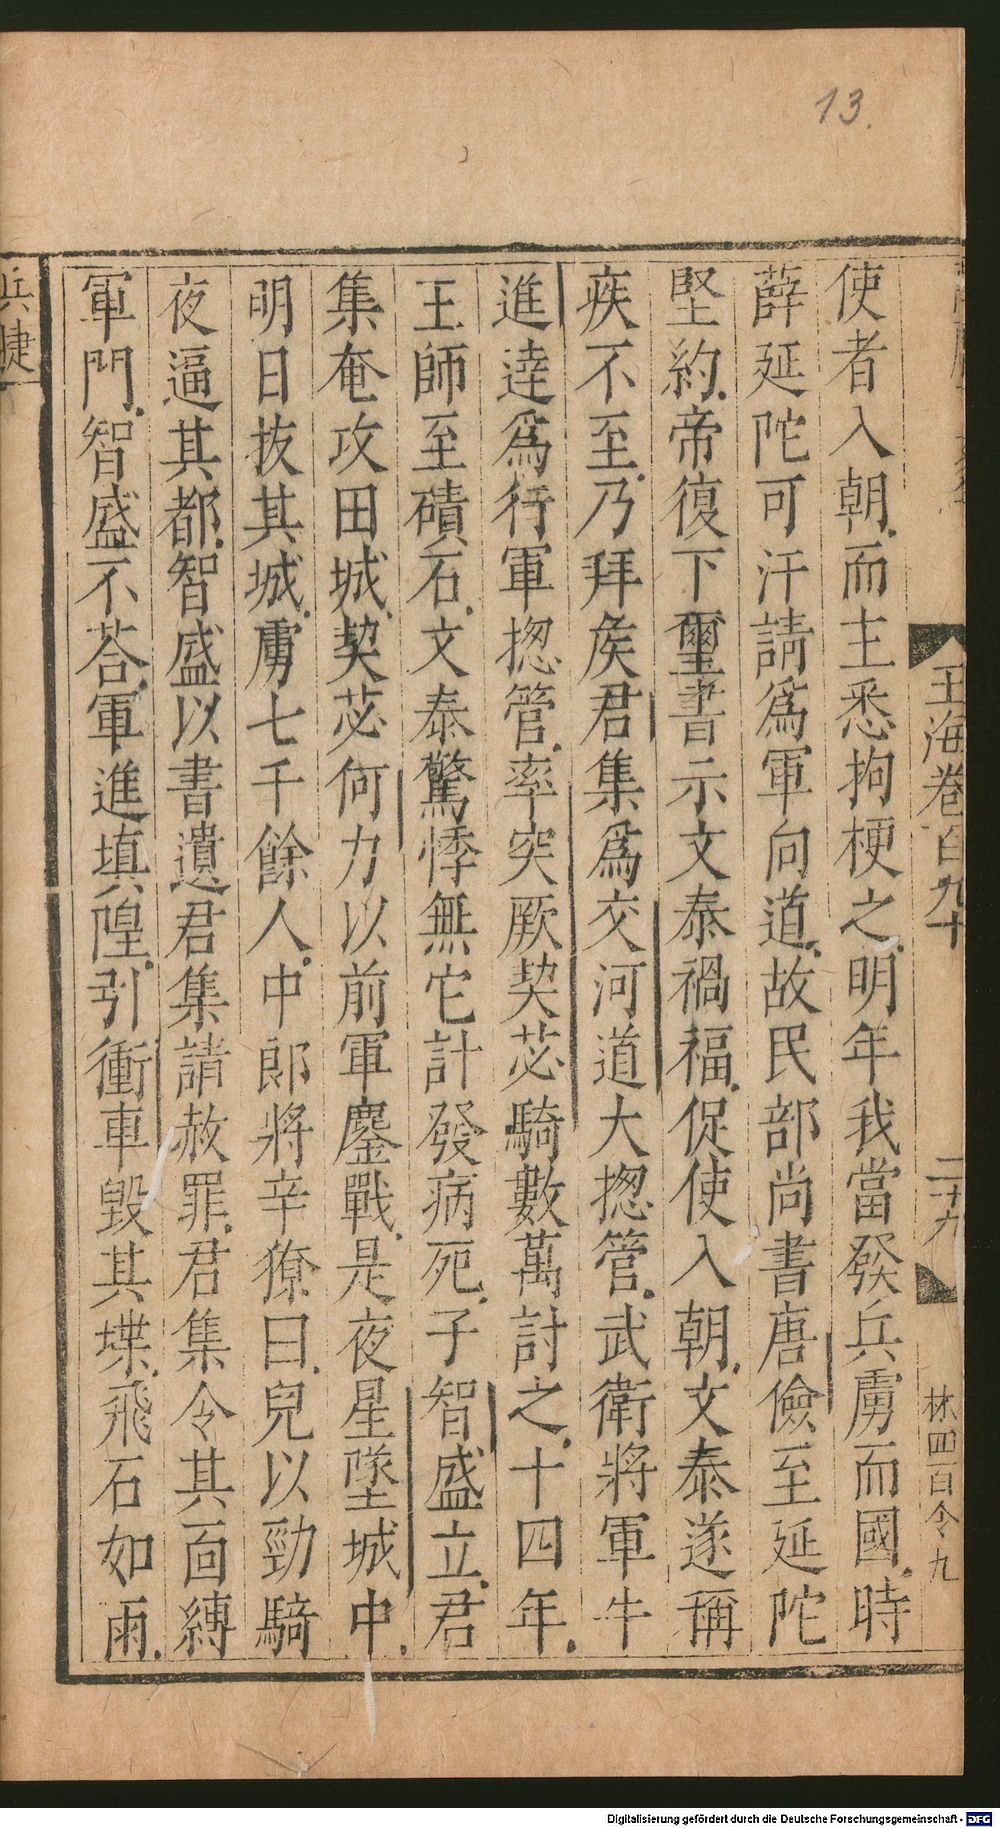 13.
玉海卷百九十
二十九
林四百令九
使者入朝而主悉拘梗之明年我當發兵虜而國時
薛延陀可汗請爲軍向道故民部尚書唐儉至延陀
堅約帝復下璽書示文泰禍福促使入朝文泰遂稱
疾不至乃拜矦君集爲交河道大揔管武衛將軍牛
進達爲行軍揔管率突厥契苾騎數萬討之十四年
王師至磧石文泰驚悸無它計發病死子智盛立君
集奄攻田城契苾何力以前軍鏖戰是夜星墜城中
明日拔其城虜七千餘人中郎將辛獠曰兒以勁騎
夜逼其都智盛以書遺君集請赦罪君集令其面縛
軍門智盛不荅軍進填隍引衝車毀其堞飛石如雨
兵捷
Digitalisierung gefördert durch die Deutsche Forschungsgemeinschaft - DFG